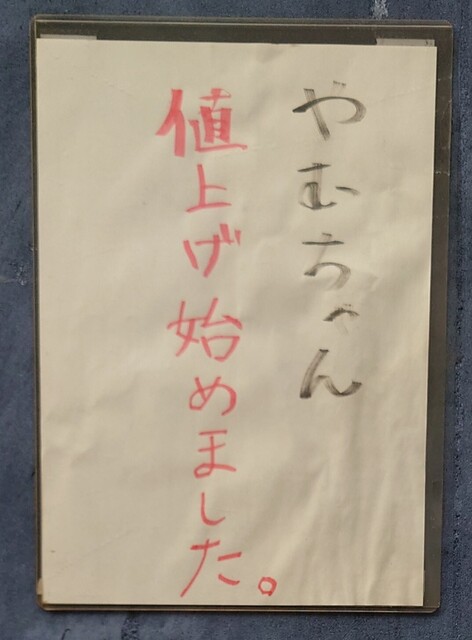 やむちゃん
値上げ始めました。